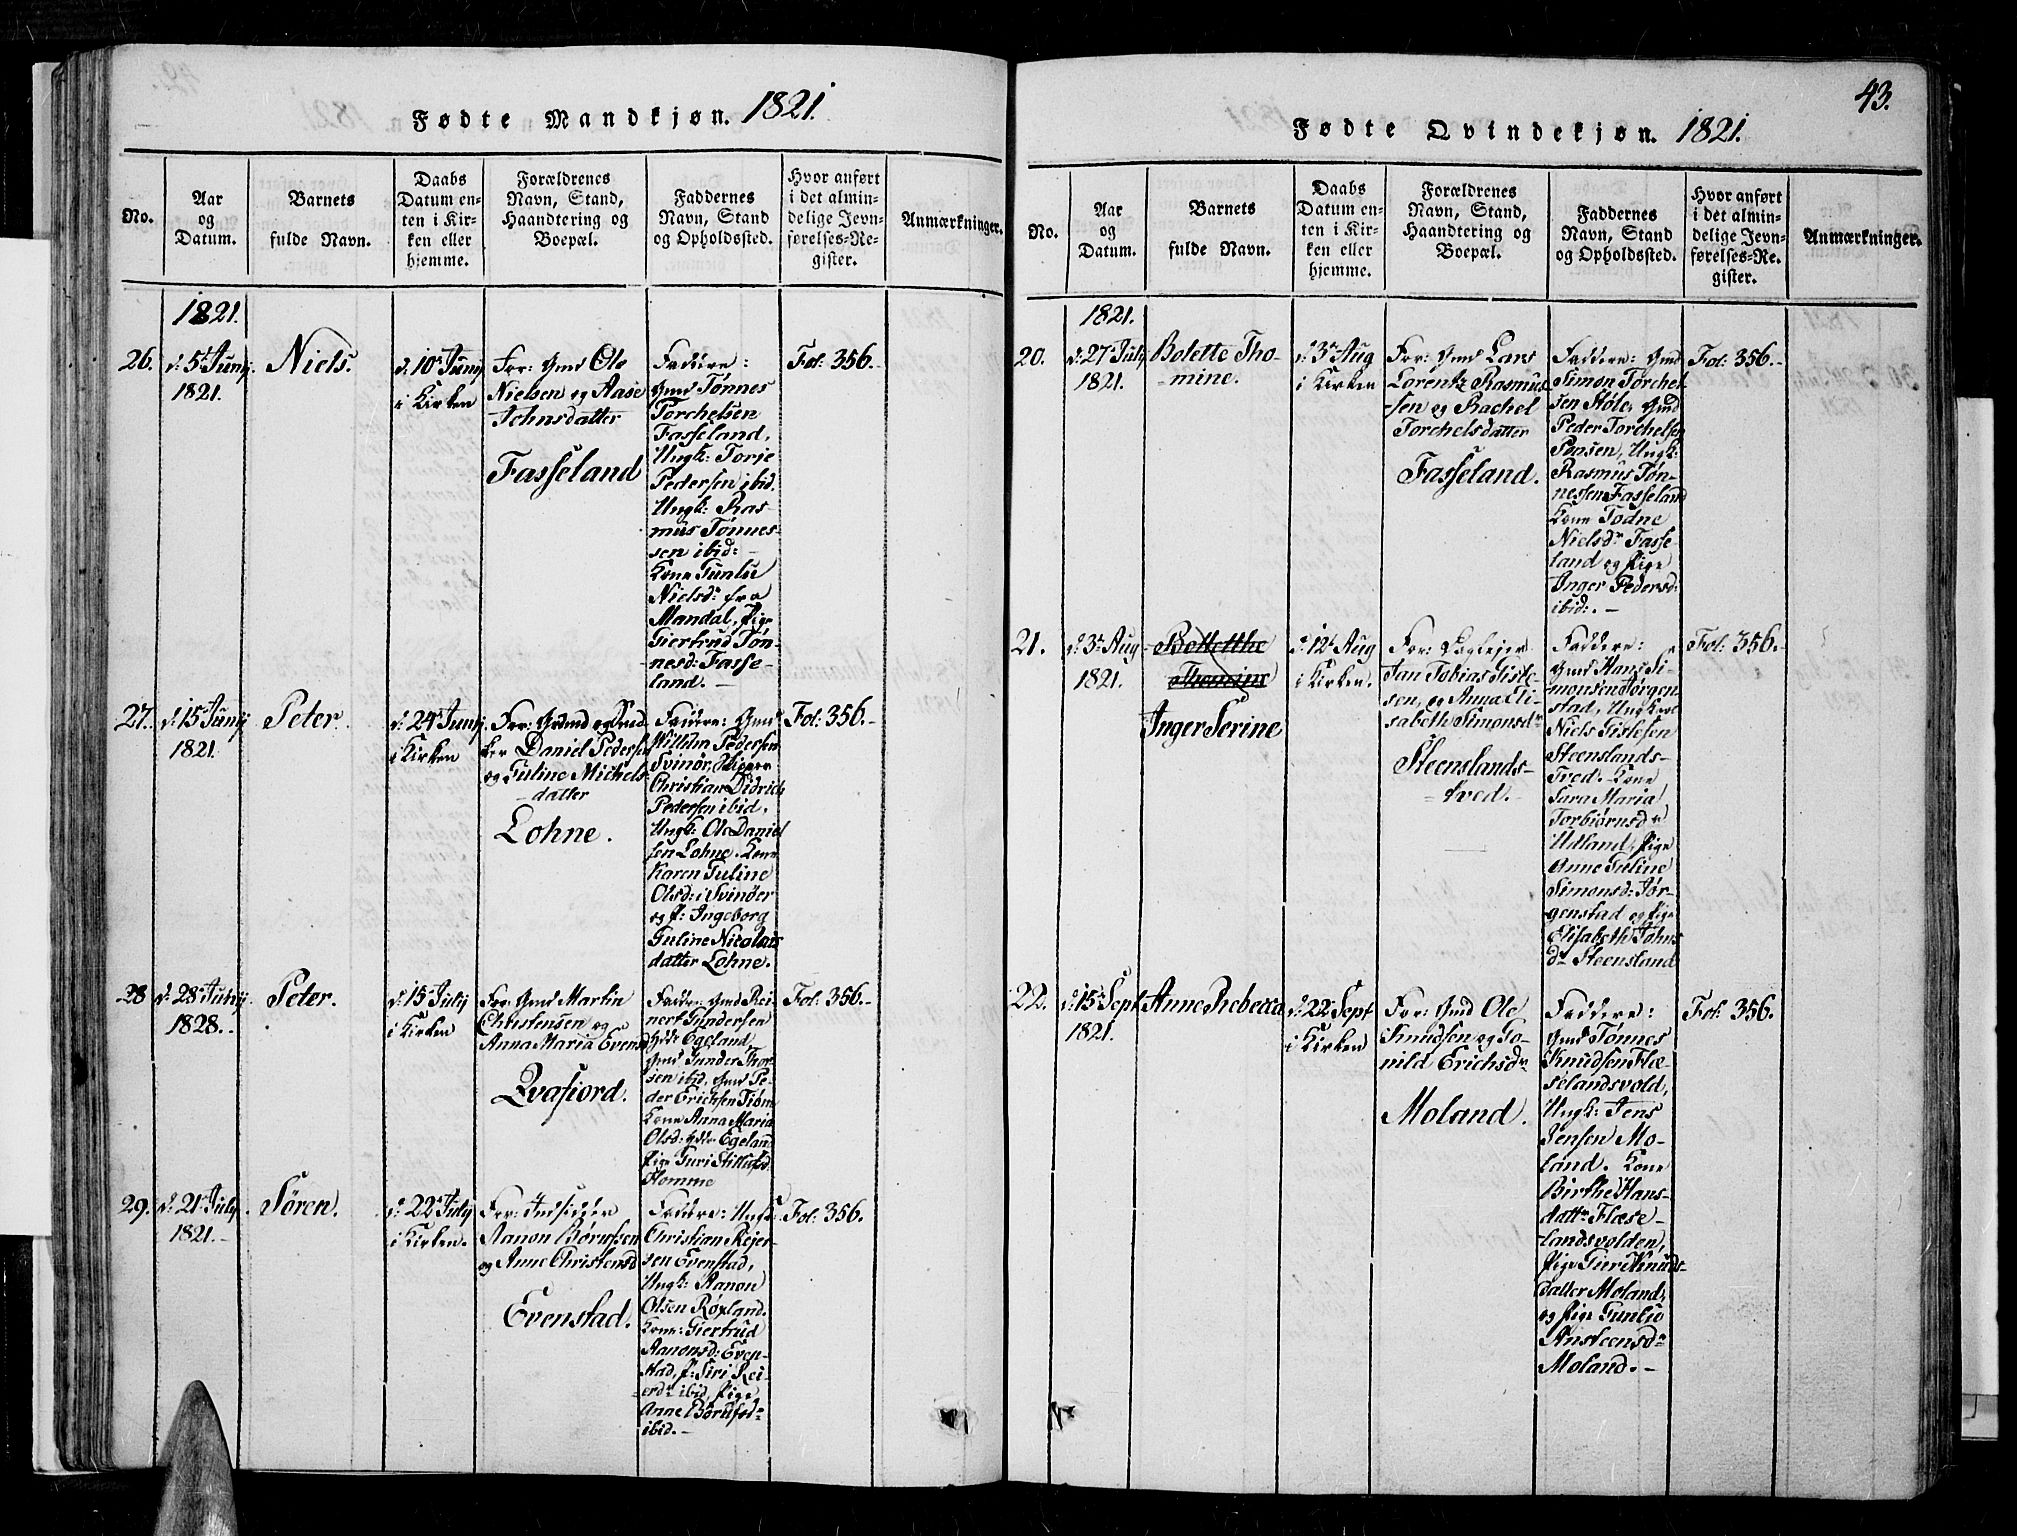 Fødte Mandkjøn. 1821.
No.
Aar
og
Datum.
Barnets
fulde Navn.
Daabs
Datum en-
ten i Kir-
ken eller
hjemme.
Forældrenes
Navn, Stand,
Haandtering og
Boepæl.
Faddernes
Navn, Stand
og Opholdssted.
Hvor anført
i det almin-
delige Jevn-
førelses-Re-
gister.
Anmærkninger.
1821.
26.
d: 5t Junij
1821.
Niels.
d. 10t Junij
i Kirken
For: Gmd Ole
Nielsen og Aase
Johnsdatter
Fasseland
Faddere:
Gmd Tønnes
Torchelsen
Fasseland,
Ungk: Torje
Pedersen ibid.
Ungk: Ras-
mus Tønnes-
sen ibid: -
Kone Gunlie
Nielsd: fra
Mandal, Pige
Giertrud Tøn-
nesd: Fasse-
land. -
Fol: 356. -
27.
d. 15t Junij
1821.
Peter.
d. 24t Junij
i Kirken
For: Gmd og Smed-
ker Daniel Pedersen
og Guline Michels-
datter
Lohne.
Faddere: Gmd
Willum Pedersen
Svinør,
Christian Didrich
Pedersen ibid,
Ungk: Ole Daniel
sen Lohne. Kone
Karen Guline
Olsd: i Svinøer
og P: Ingeborg
Guline Nicolais
datter Lohne.
Fol: 356. -
28
d. 28t Junij
1828. -
Peter.
d: 15t July
i Kirken
For: Gmd Martin
Christensen og
Anna Maria Evensd
Qvafiord.
Fadder: Gmd Rei-
nert Gundersen
Ydr Egeland,
Gmd Gunder Thor
sen ibid, Gmd Pe-
der Erichsen Tiøm
Kone Anna Maria
Olsd: Ydre Egeland
Pige Guri
Homme
Fol: 356. -
29.
d: 21t July
1821. -
Søren.
d: 22t July
i Kirken.
For: Indsidder
Aanon Børufsen
og Anne Christensd
Evenstad.
Faddere: Ungk:
Christian Reier-
sen Evenstad,
Ungk: Aanon
Olsen Røxland.
Kone: Giertrud
Aanonsd: Even-
stad, P: Siri Rei-
ersdr ibid, Pige
Anne Børufsd:
ibid. -
Fol: 356.
43.
Fødte Qvindekjøn. 1821.
No.
Aar
og
Datum.
Barnets
fulde Navn.
Daabs
Datum en-
ten i Kir-
ken eller
hjemme.
Forældrenes
Navn, Stand,
Haandtering og
Boepæl.
Faddernes
Navn, Stand
og Opholdssted.
Hvor anført
i det almin-
delige Jevn-
førelses-Re-
gister.
Anmærkninger.
1821.
20.
d: 27t July
1821.
Bolette Tho-
mine.
d: 3t Aug
i Kirken
For: Gmd Lars
Lorentz Rasmus-
sen og Rachel
Torchelsdatter
Fasseland.
Faddere: Gmd
Simon Torchel
sen Støle, Gmd
Peder Torchelsen
Ponsen, Ungk:
Rasmus Tøn-
nessen Fasseland
Kone Todne
Nielsdr Fasse-
land og Pige
Inger Pedersd:
ibid:. -
Fol: 356. -
21.
d: 3t Aug
1821.
Boletthe
Thomine
Inger Serine
d: 12t Aug
i Kirken.
For:
Jan Tobias Gisle-
sen, og Anna Eli-
sabeth Simonsdr
Steenslands-
tved. -
Faddere:
Gmd Hans Si-
monsen Jørgen-
stad, Ungk:
Niels Gislesen
Steenslands-
tved. Kone
Sara Maria
Torbiørnsdr
Udland, Pige
Anne Guline
Simonsd: Jør-
genstad og Pige
Elisabeth Johns
dr Steensland
Fol: 356. -
22.
d: 15t Sept
1821.
Anne Rebecca
d: 22t Sept
i Kirken
For: Gmd Ole
Knudsen og Go-
nild Erichsdr
Moland.
Faddere:
Gmd Tønnes
Knudsen Flæ-
selandsvold,
Ungk: Jens
Jensen Mo-
land. Kone
Birthe Hans-
dattr Flæse-
landsvolden,
Pige Guri Knuds-
datter Moland,
og Pige Gunlie
Ansteensdr
Moland. -
Fol: 356.